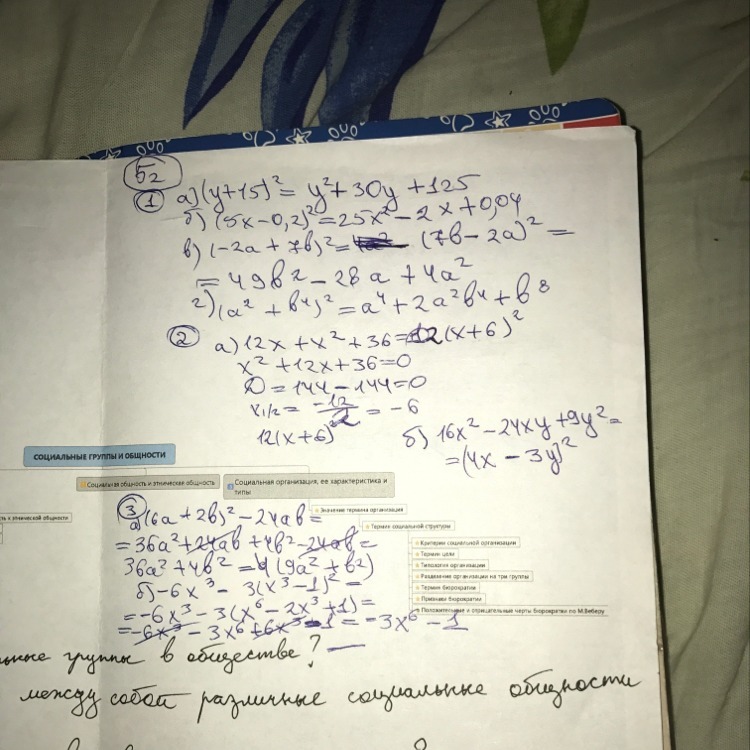 Б2
1 а) (y+15)² = y²+30y+125
б) (5x-0,2)² = 25x² - 2x + 0,04
в) (-2a + 7b)² = (7b - 2a)² =
= 49b² - 28a + 4a²
г) (a² + b⁴)² = a⁴ + 2a²b⁴ + b⁸
2 а) 12x + x² + 36 = (x+6)²
x² + 12x + 36 = 0
D = 144 - 144 = 0
x1/2 = -12/2 = -6
12(x+6)²
б) 16x² - 24xy + 9y² =
= (4x - 3y)²
СОЦИАЛЬНЫЕ ГРУППЫ И ОБЩНОСТИ
Социальная общность и этническая общность
Социальная организация, ее характеристика и
типы
к этнической общности
Значение термина организация
Термин социальной структуры
Критерии социальной организации
Термин цели
Типология организации
Разделение организации на три группы
Термин бюрократия
Признаки бюрократии
Положительные и отрицательные черты бюрократии по М.Веберу
3 а) (6a + 2b)² - 24ab =
= 36a² + 24ab + 4b² - 24ab =
36a² + 4b² = 4(9a² + b²)
б) -6x³ - 3(x³-1)² =
= -6x³ - 3(x⁶ - 2x³ + 1) =
= -6x³ - 3x⁶ + 6x³ - 1 = -3x⁶ - 1
льные группы в обществе?
между собой различные социальные общности